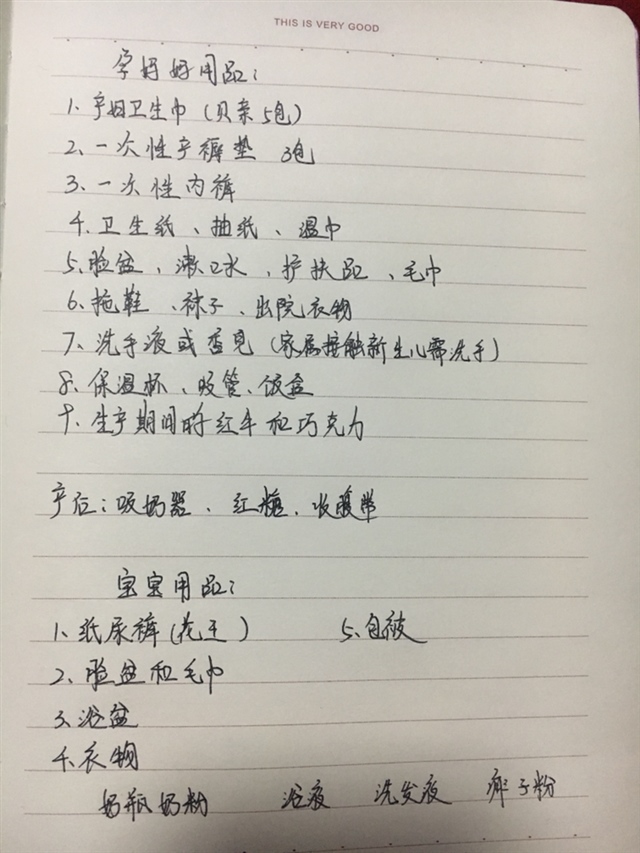 THIS IS VERY GOOD
孕妈妈用品：
1、产妇卫生巾（贝亲5包）
2、一次性产褥垫 3包
3、一次性内裤
4、卫生纸、抽纸、湿巾
5、脸盆、漱口水、护肤品、毛巾
6、拖鞋、袜子、出院衣物
7、洗手液或香皂（家属接触新生儿需洗手）
8、保温杯、吸管、饭盒
9、生产期间的红牛和巧克力
产后：吸奶器、红糖、收腹带
宝宝用品：
1、纸尿裤（花王） 5、包被
2、脸盆和毛巾
3、浴盆
4、衣物
奶瓶奶粉 浴液 洗发液 痱子粉